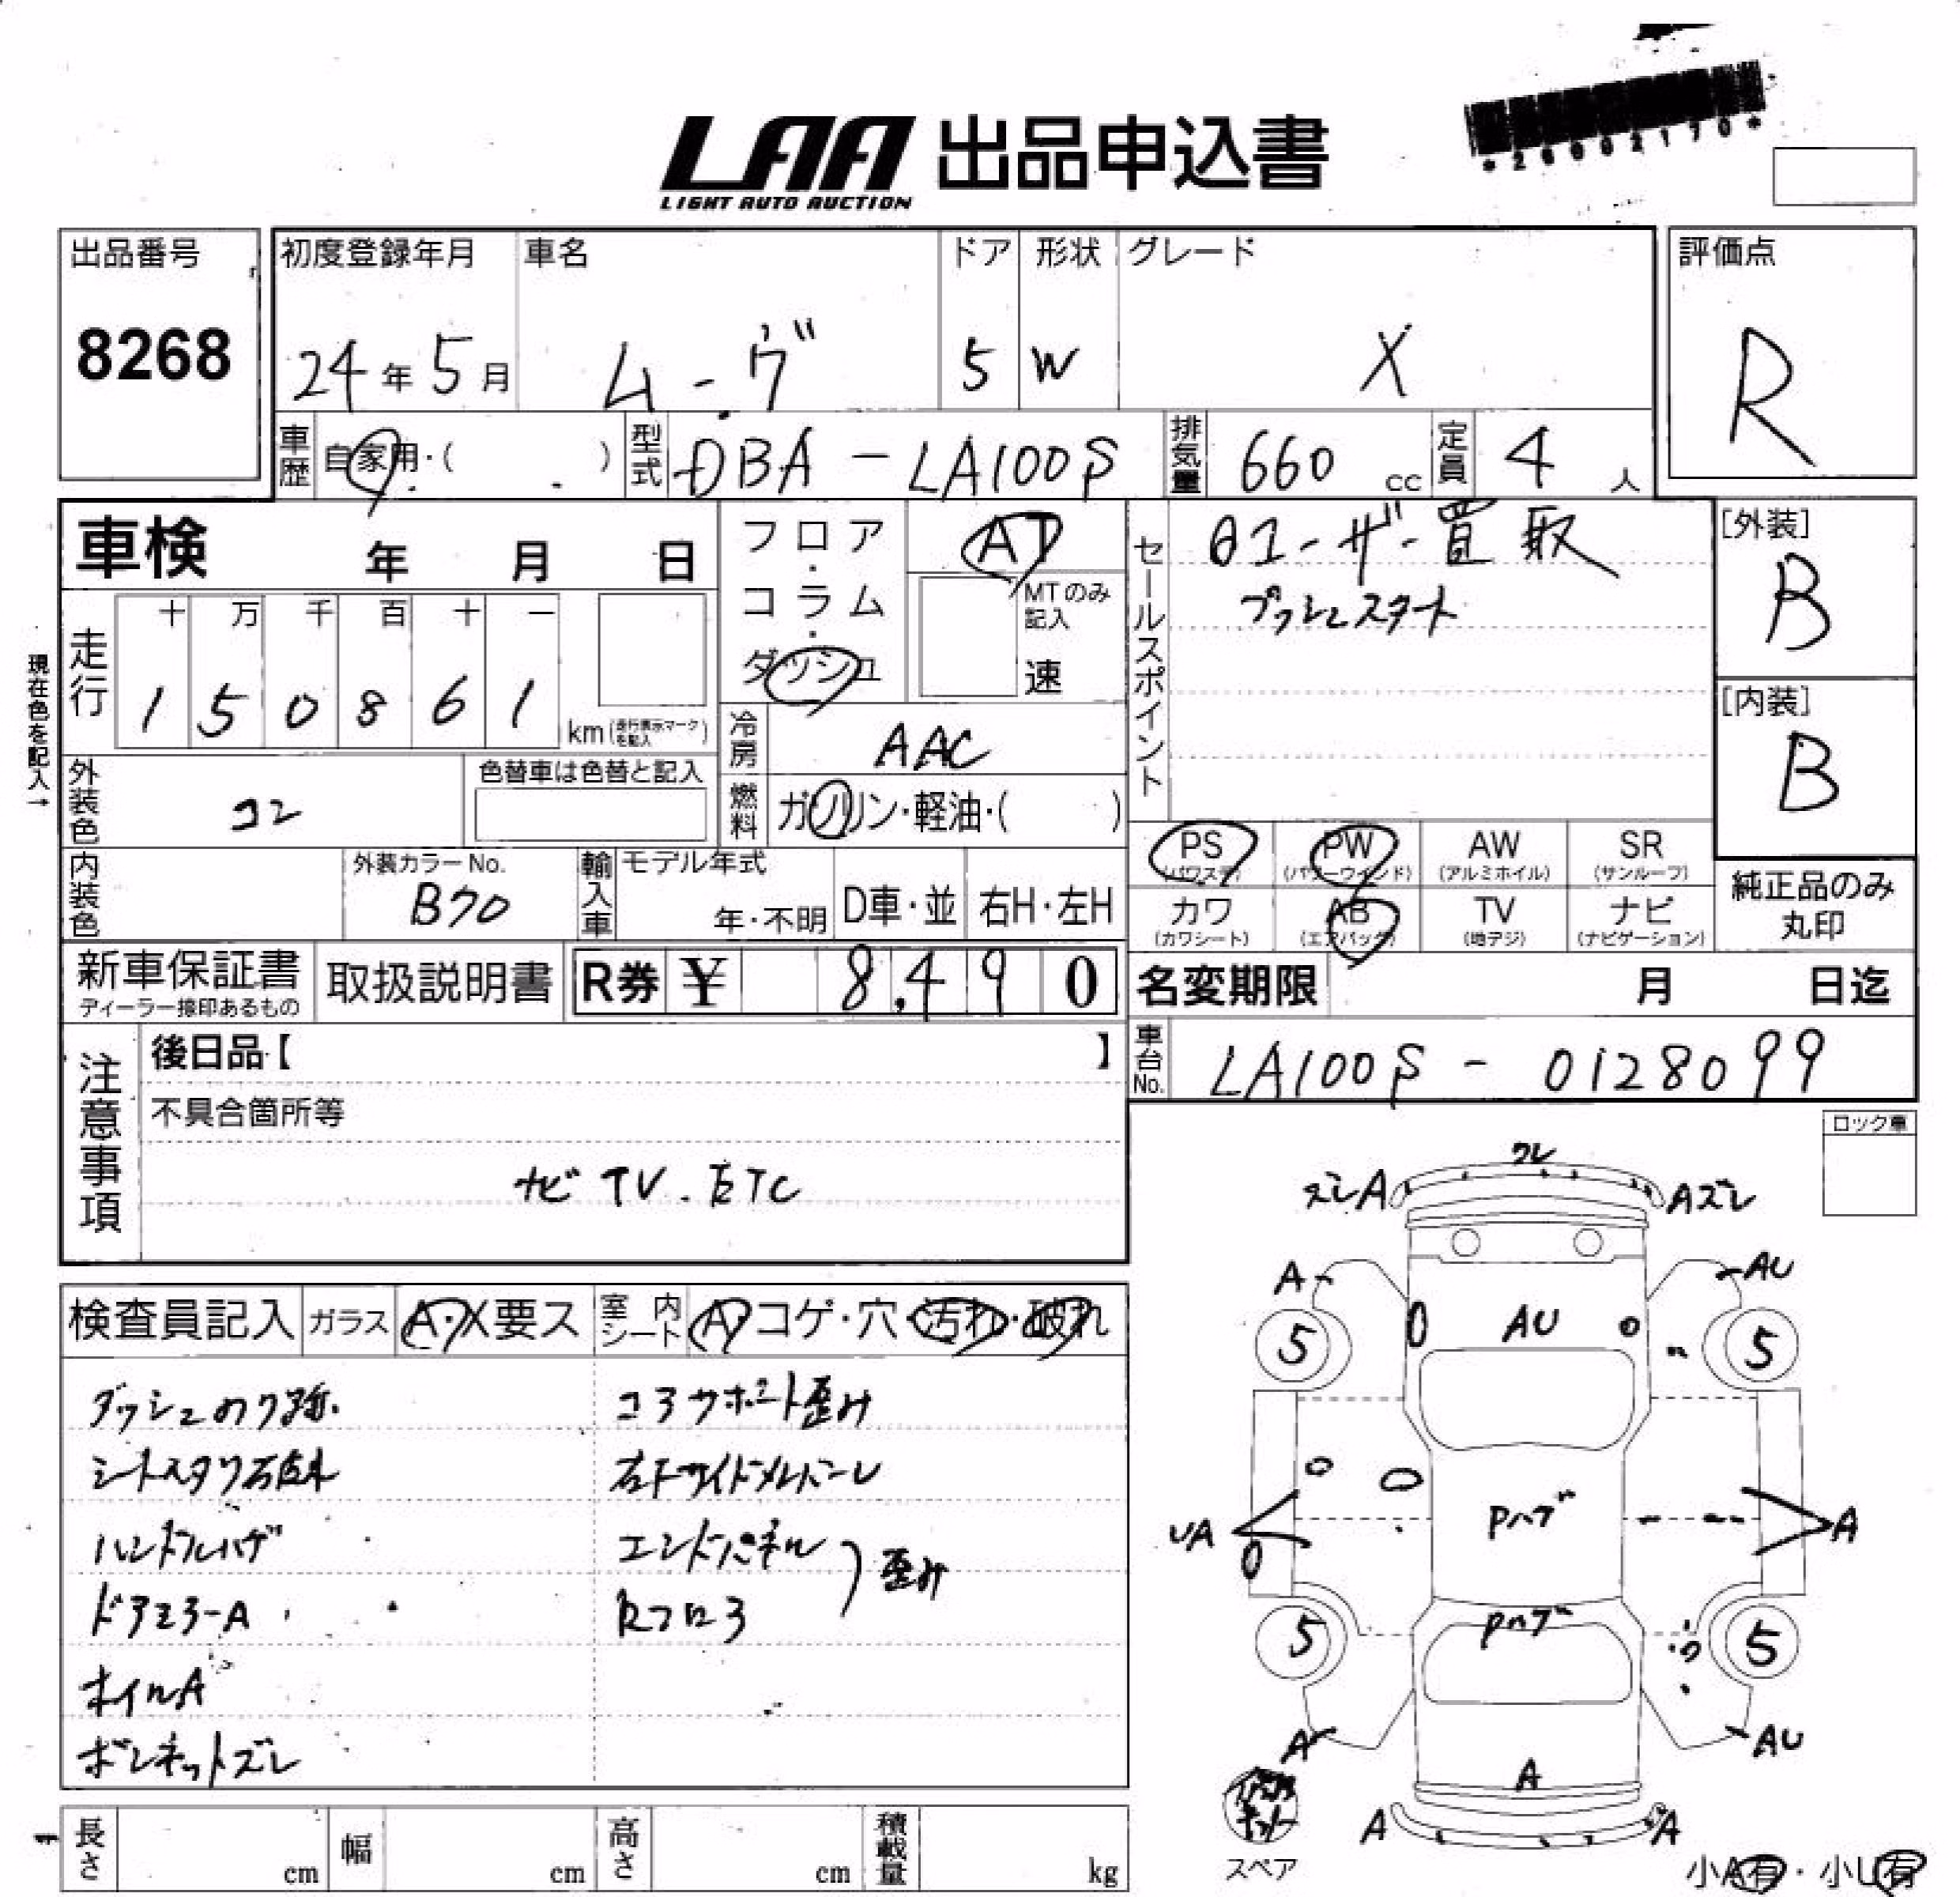 LAA 出品申込書
LIGHT AUTO AUCTION
*26002170*
出品番号
8268
初度登録年月
24年5月
車名
ムーヴ
ドア
5
形状
W
グレード
X
評価点
R
車歴
自家用・( )
型式
DBA-LA100S
排気量
660 cc
定員
4 人
車検 年 月 日
フロア・コラム・ダッシュ
AT
MTのみ記入
速
セールスポイント
ユーザー買取
プッシュスタート
[外装]
B
[内装]
B
現在色を記入→
走行
十 万 千 百 十 一
1 5 0 8 6 1
km (走行表示マークを記入)
冷房
AAC
燃料
ガソリン・軽油・( )
外装色
コン
色替車は色替と記入
内装色
外装カラーNo.
B70
輸入車
モデル年式
年・不明
D車・並
右H・左H
PS (パワステ)
PW (パワーウインド)
AW (アルミホイル)
SR (サンルーフ)
カワ (カワシート)
AB (エアバック)
TV (地デジ)
ナビ (ナビゲーション)
純正品のみ丸印
新車保証書
ディーラー捺印あるもの
取扱説明書
R券 ¥ 8,490
名変期限 月 日迄
車台No.
LA100S-0128099
注意事項
後日品【 】
不具合箇所等
ナビTV.ETC
ロック車
検査員記入
ガラス
A・X要ス
室内シート
A・コゲ・穴・汚れ・破れ
ダッシュのり跡.
シートスタワ
ハンドルハゲ
ドアミラーA
ホイルA
ボンネットズレ
コアサポート歪み
右Fサイドメルバーレ
エンドパネル
Rフロア
歪み
ワレ
ズレA
Aズレ
A
AU
5
AU
5
Pハゲ
UA
A
Pハゲ
5
5
A
AU
A
A
A
スペア
小A有・小U有
長さ cm
幅 cm
高さ cm
積載量 kg